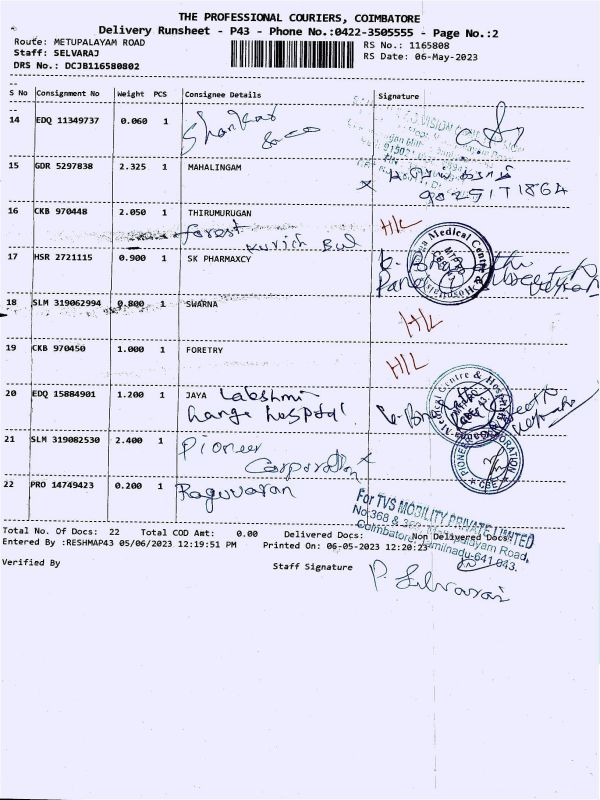 THE PROFESSIONAL COURIERS, COIMBATORE
Delivery Runsheet - P43 - Phone No.:0422-3505555 - Page No.:2
Route: METUPALAYAM ROAD
RS No.: 1165808
Staff: SELVARAJ
RS Date: 06-May-2023
DRS No.: DCJB116580802
S No Consignment No Weight PCS Consignee Details Signature
14 EDQ 11349737 0.060 1 Shankar
15 GDR 5297838 2.325 1 MAHALINGAM
16 CKB 970448 2.050 1 THIRUMURUGAN H/L
forest
17 HSR 2721115 0.900 1 SK PHARMAXCY
18 SLM 319062994 0.800 1 SWARNA H/L
19 CKB 970450 1.000 1 FORETRY H/L
20 EDQ 15884901 1.200 1 JAYA Lakshmi
hospital
21 SLM 319082530 2.400 1 Pioneer
Corporation
22 PRO 14749423 0.200 1 Raguvaran
For TVS MOBILITY PRIVATE LIMITED
Total No. Of Docs: 22 Total COD Amt: 0.00 Delivered Docs: Non Delivered Docs:
Entered By :RESHMAP43 05/06/2023 12:19:51 PM Printed On: 06-05-2023 12:20:23
Coimbatore, Tamilnadu-641 043.
Verified By Staff Signature P. Selvaraj